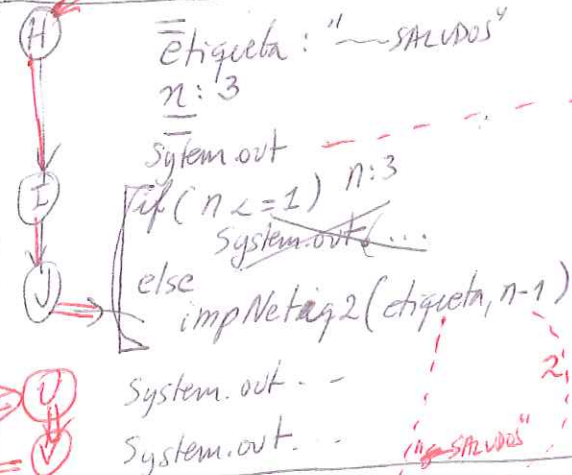 H
etiqueta: "~~SALUDOS"
n: 3
Sytem.out
I if(n <= 1) n:3
System.out(...
J else
impNetiq2(etiqueta, n-1)
2
U System.out. - -
V System.out. ...
"~SALUDOS"